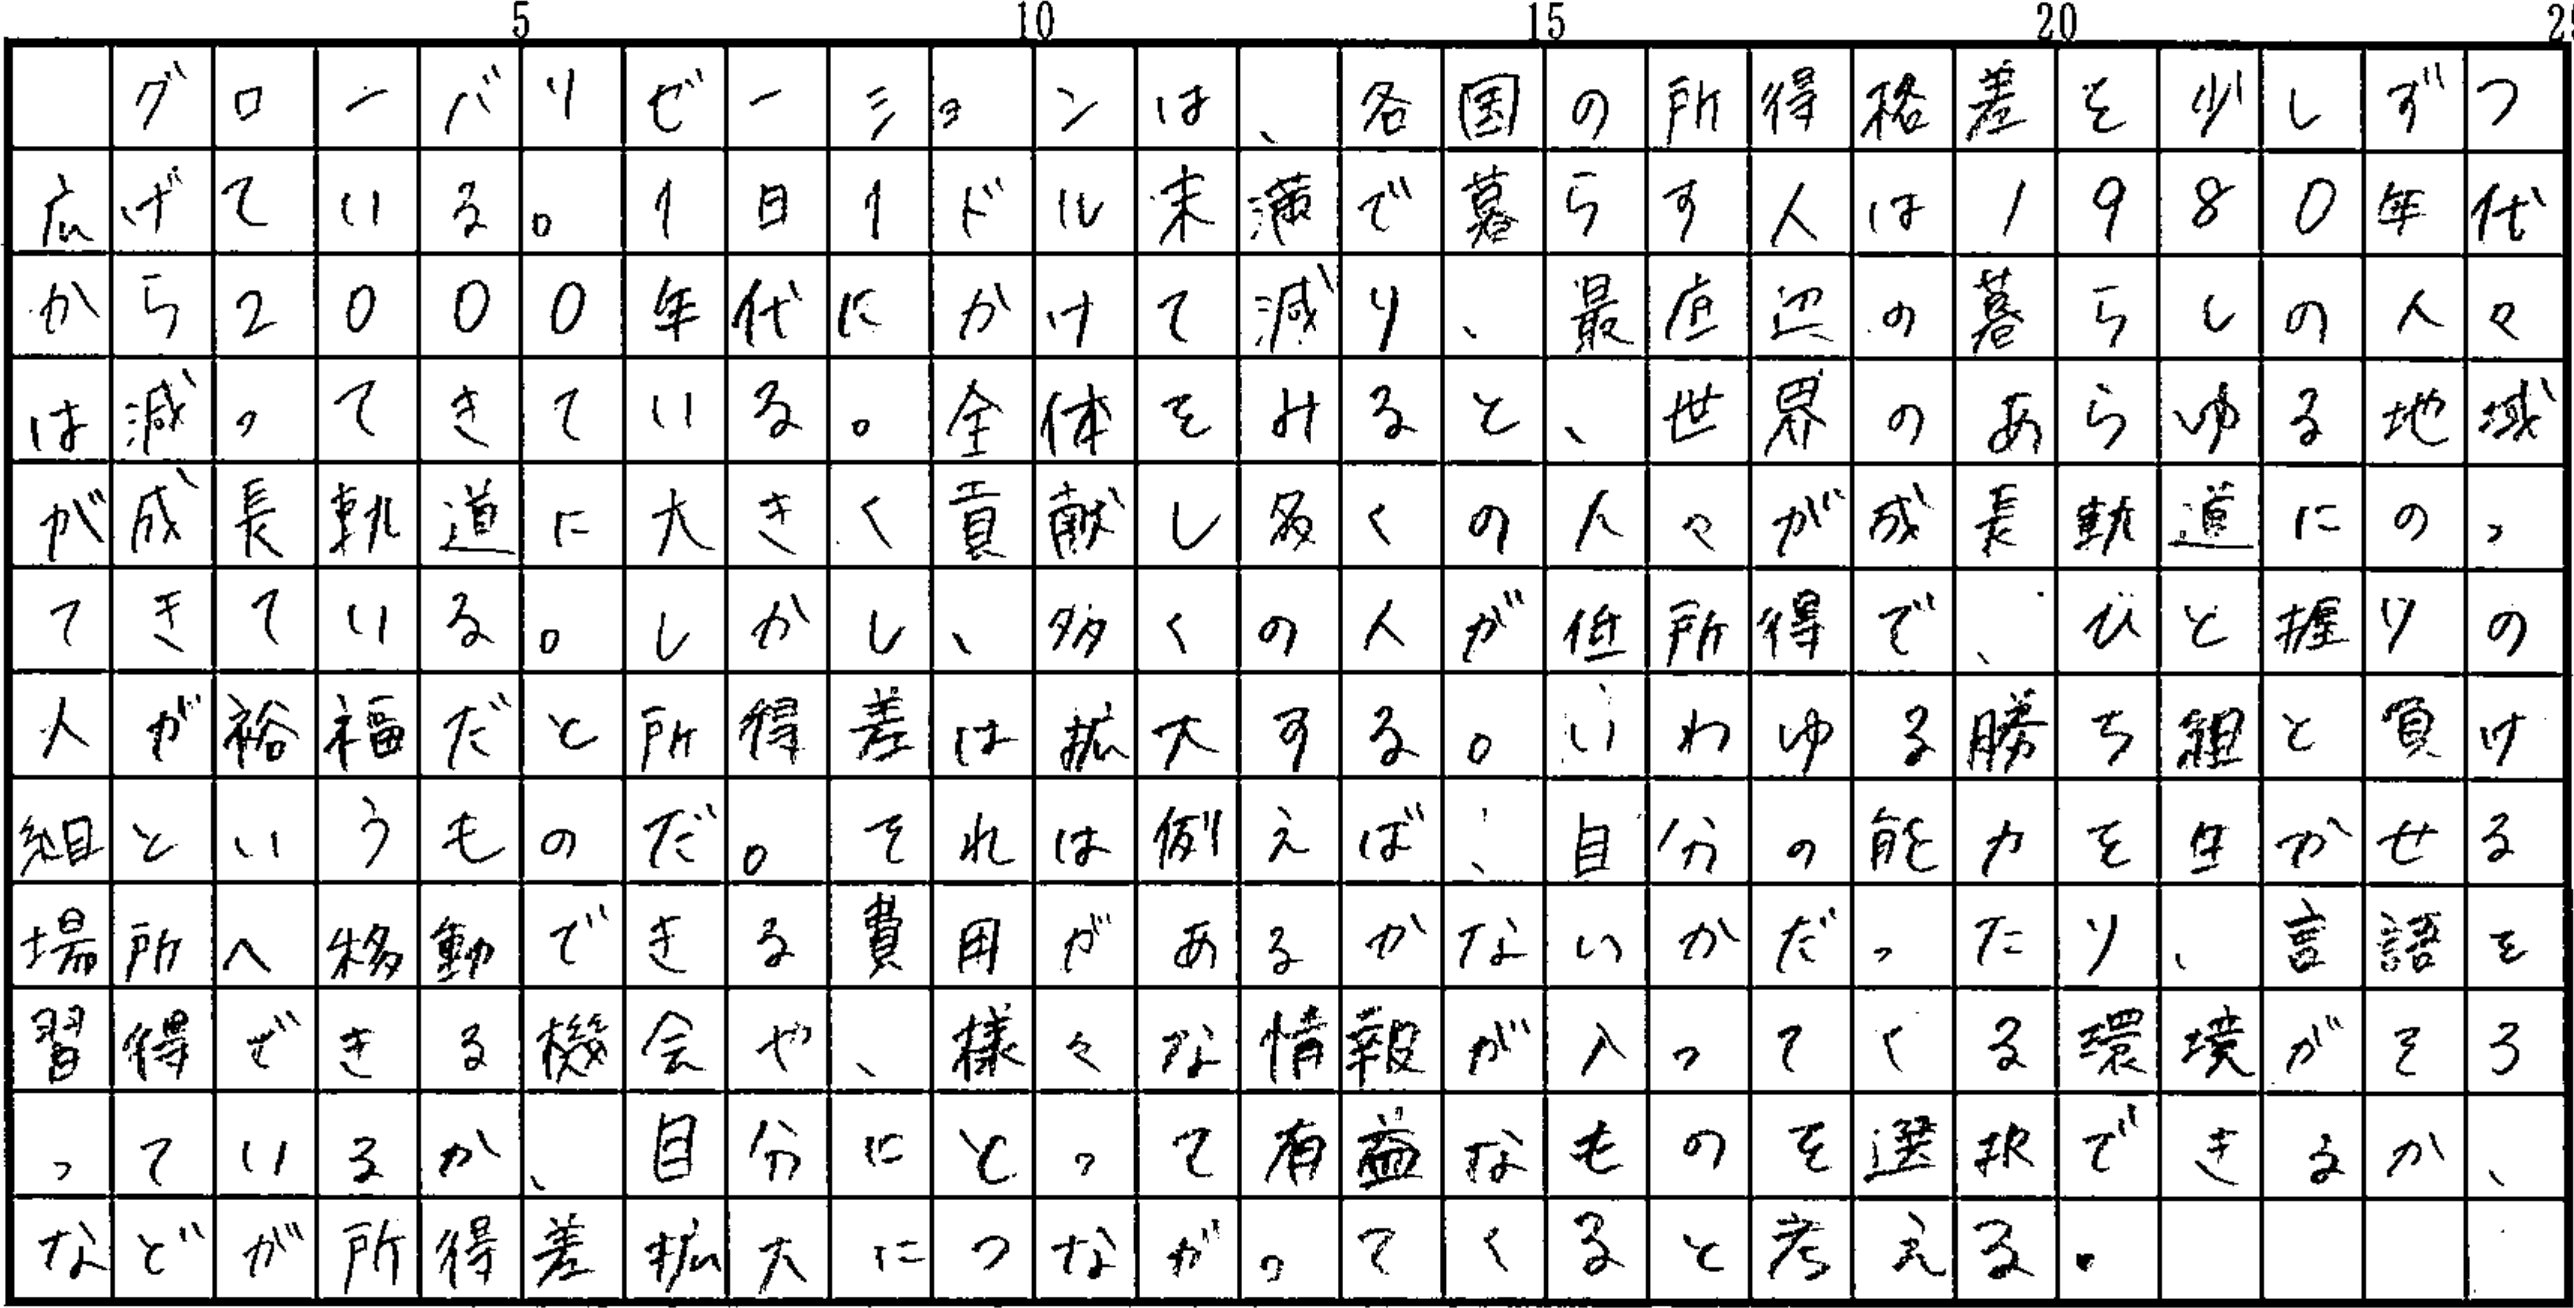 5 10 15 20 25
グローバリゼーションは、各国の所得格差を少しずつ
広げている。1日1ドル未満で暮らす人は1980年代
から2000年代にかけて減り、最底辺の暮らしの人々
は減ってきている。全体をみると、世界のあらゆる地域
が成長軌道に大きく貢献し多くの人々が成長軌道にのっ
てきている。しかし、多くの人が低所得で、ひと握りの
人が裕福だと所得差は拡大する。いわゆる勝ち組と負け
組というものだ。それは例えば、自分の能力を生かせる
場所へ移動できる費用があるかないかだったり、言語を
習得できる機会や、様々な情報が入ってくる環境がそろ
っているか、自分にとって有益なものを選択できるか、
などが所得差拡大につながってくると考える。